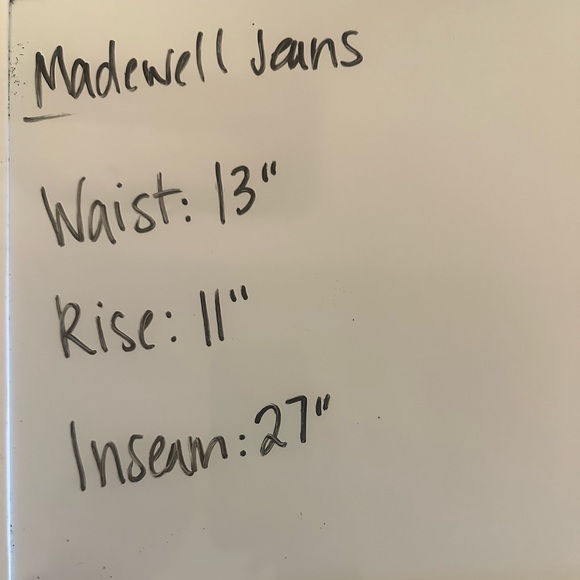 Madewell Jeans
Waist: 13"
Rise: 11"
Inseam: 27"